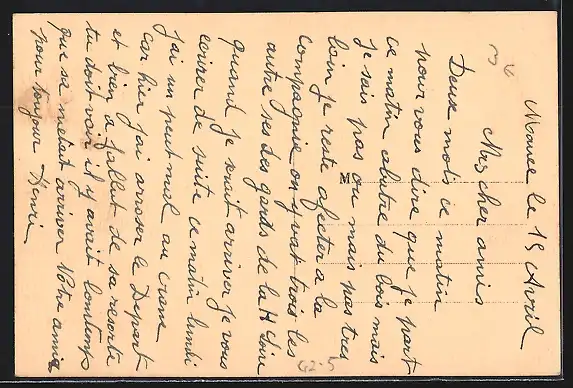 le 15 Avril
Mes cher amis
Deux mots ce matin
pour vous dire que je part
ce matin abatre du bois mais
je sais pas ou mais pas tres
loin je reste afecter a la
compagnie on y vat trois les
autre ses des gards de la H Seine
quand je srait arriver je vous
ecrirer de suite ce matin lundi
j'ai un peut mal au crane
car hier j'ai arroser le Depart
et bien a fallut de sa reserte
tu doit voir il y avait lontemps
que sa metait arriver Votre amis
pour toujour Henri
M
G2-5